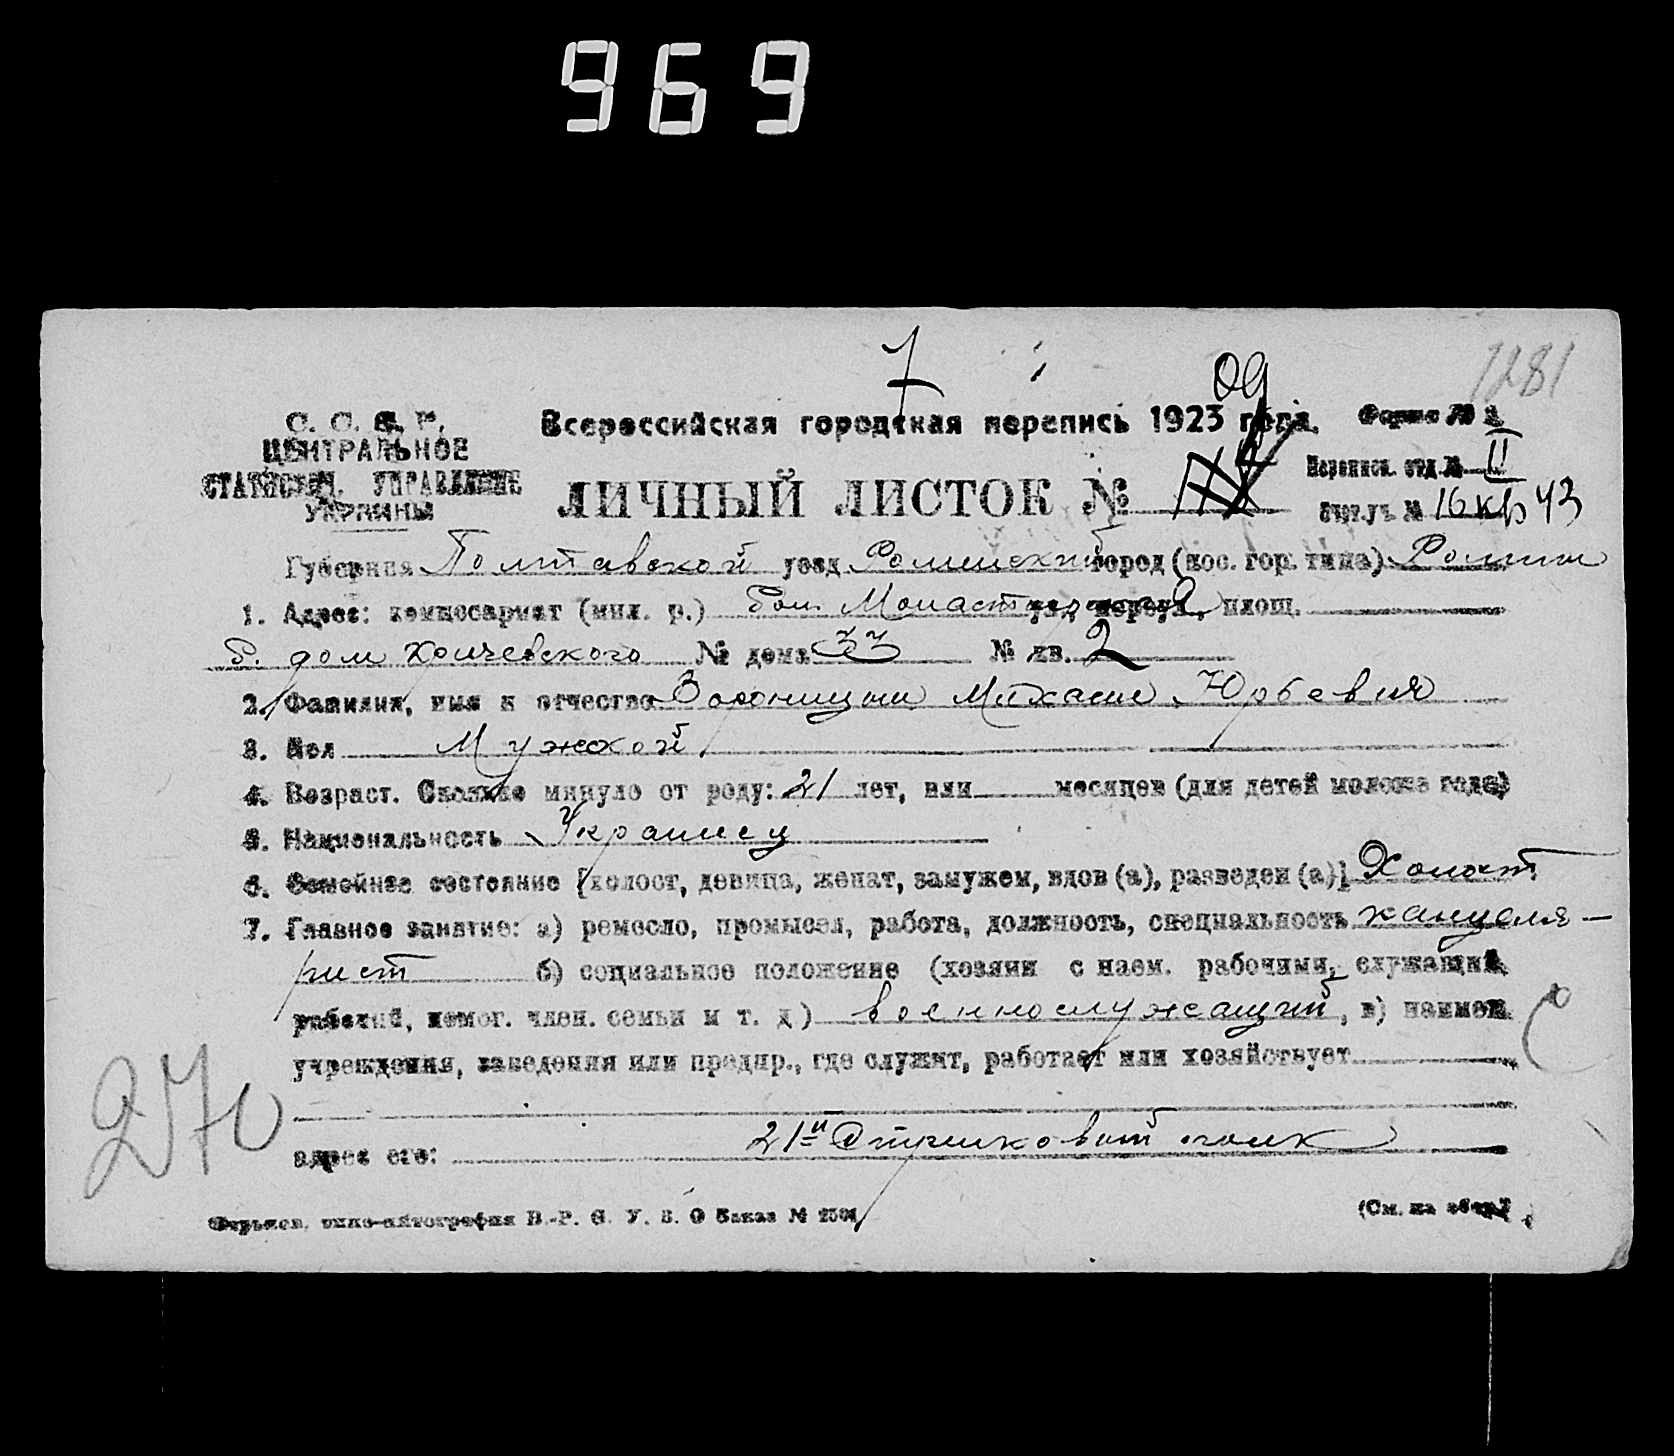 969
7
09
1281
С. С. С. Р.
Всероссийская городская перепись 1923 года.
Форма № 2
ЦЕНТРАЛЬНОЕ
Переписн. отд. № II
СТАТИСТИЧ. УПРАВЛЕНИЕ
ЛИЧНЫЙ ЛИСТОК №
УКРАИНЫ
Счетн. уч. № 16 кв 43
Губерния Полтавской уезд Роменский город (пос. гор. типа) Ромны
1. Адрес: комиссариат (мил. р.) Бол. Монастырская площ.
б. дом Кричевского № дома 33 № кв. 2
2. Фамилия, имя и отчество Михаил Юрьевич
3. Пол Мужской
4. Возраст. Сколько минуло от роду: 21 лет, или месяцев (для детей моложе года)
5. Национальность Украинец
6. Семейное состояние [холост, девица, женат, замужем, вдов (а), разведен (а)] Холост
7. Главное занятие: а) ремесло, промысел, работа, должность, специальность канцеля-
рист б) социальное положение (хозяин с наем. рабочими, служащий,
рабочий, помог. член. семьи и т. д) военнослужащий, в) наимен.
учреждения, заведения или предпр., где служит, работает или хозяйствует
270
адрес его: 21й Стрелковый полк
Заказ №
(См. на обор.)